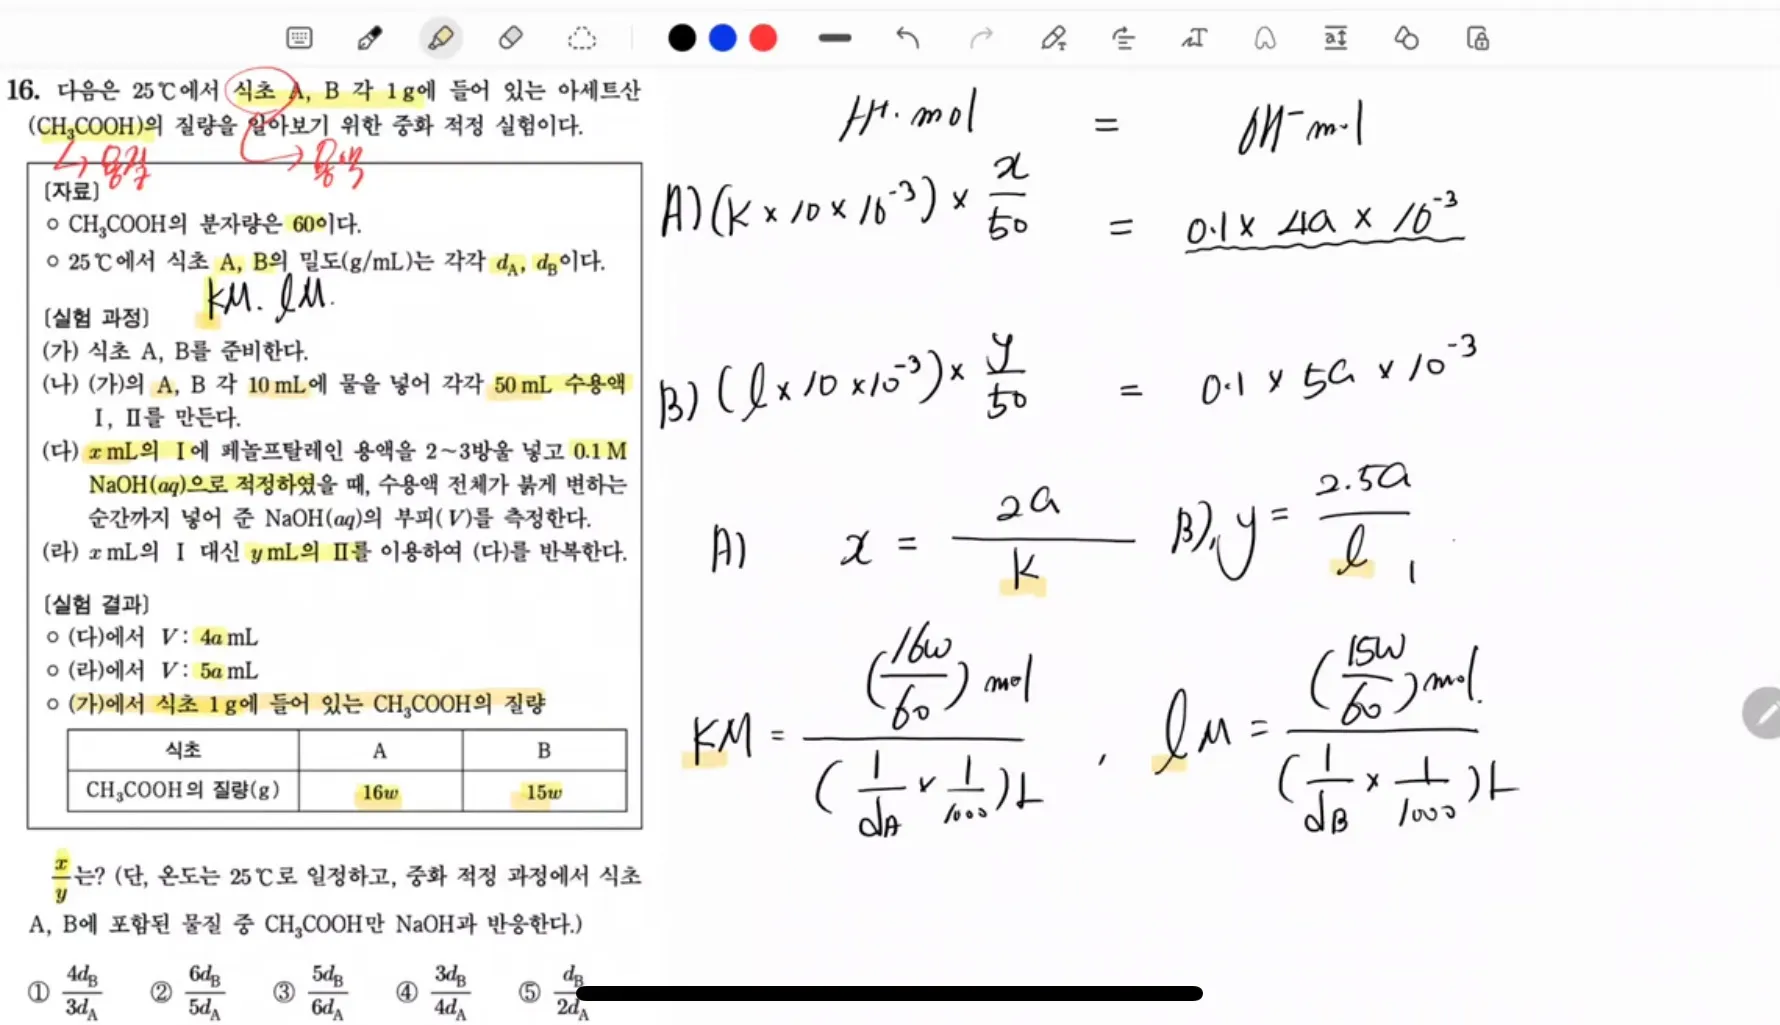 16. 다음은 25℃에서 식초 A, B 각 1 g에 들어 있는 아세트산
(CH₃COOH)의 질량을 알아보기 위한 중화 적정 실험이다.
용질
용액
[자료]
○ CH₃COOH의 분자량은 60이다.
○ 25℃에서 식초 A, B의 밀도(g/mL)는 각각 d_A, d_B이다.
kM. lM.
[실험 과정]
(가) 식초 A, B를 준비한다.
(나) (가)의 A, B 각 10 mL에 물을 넣어 각각 50 mL 수용액
Ⅰ, Ⅱ를 만든다.
(다) x mL의 Ⅰ에 페놀프탈레인 용액을 2~3방울 넣고 0.1 M
NaOH(aq)으로 적정하였을 때, 수용액 전체가 붉게 변하는
순간까지 넣어 준 NaOH(aq)의 부피(V)를 측정한다.
(라) x mL의 Ⅰ 대신 y mL의 Ⅱ를 이용하여 (다)를 반복한다.
[실험 결과]
○ (다)에서 V: 4a mL
○ (라)에서 V: 5a mL
○ (가)에서 식초 1 g에 들어 있는 CH₃COOH의 질량
식초 A B
CH₃COOH의 질량(g) 16w 15w
x/y는? (단, 온도는 25℃로 일정하고, 중화 적정 과정에서 식초
A, B에 포함된 물질 중 CH₃COOH만 NaOH과 반응한다.)
① 4d_B/3d_A ② 6d_B/5d_A ③ 5d_B/6d_A ④ 3d_B/4d_A ⑤ d_B/2d_A
H⁺ mol = OH⁻ mol
A) (k × 10 × 10⁻³) × x/50 = 0.1 × 4a × 10⁻³
B) (l × 10 × 10⁻³) × y/50 = 0.1 × 5a × 10⁻³
A) x = 2a/k B), y = 2.5a/l
kM = (16w/60) mol / (1/d_A × 1/1000) L , lM = (15w/60) mol / (1/d_B × 1/1000) L